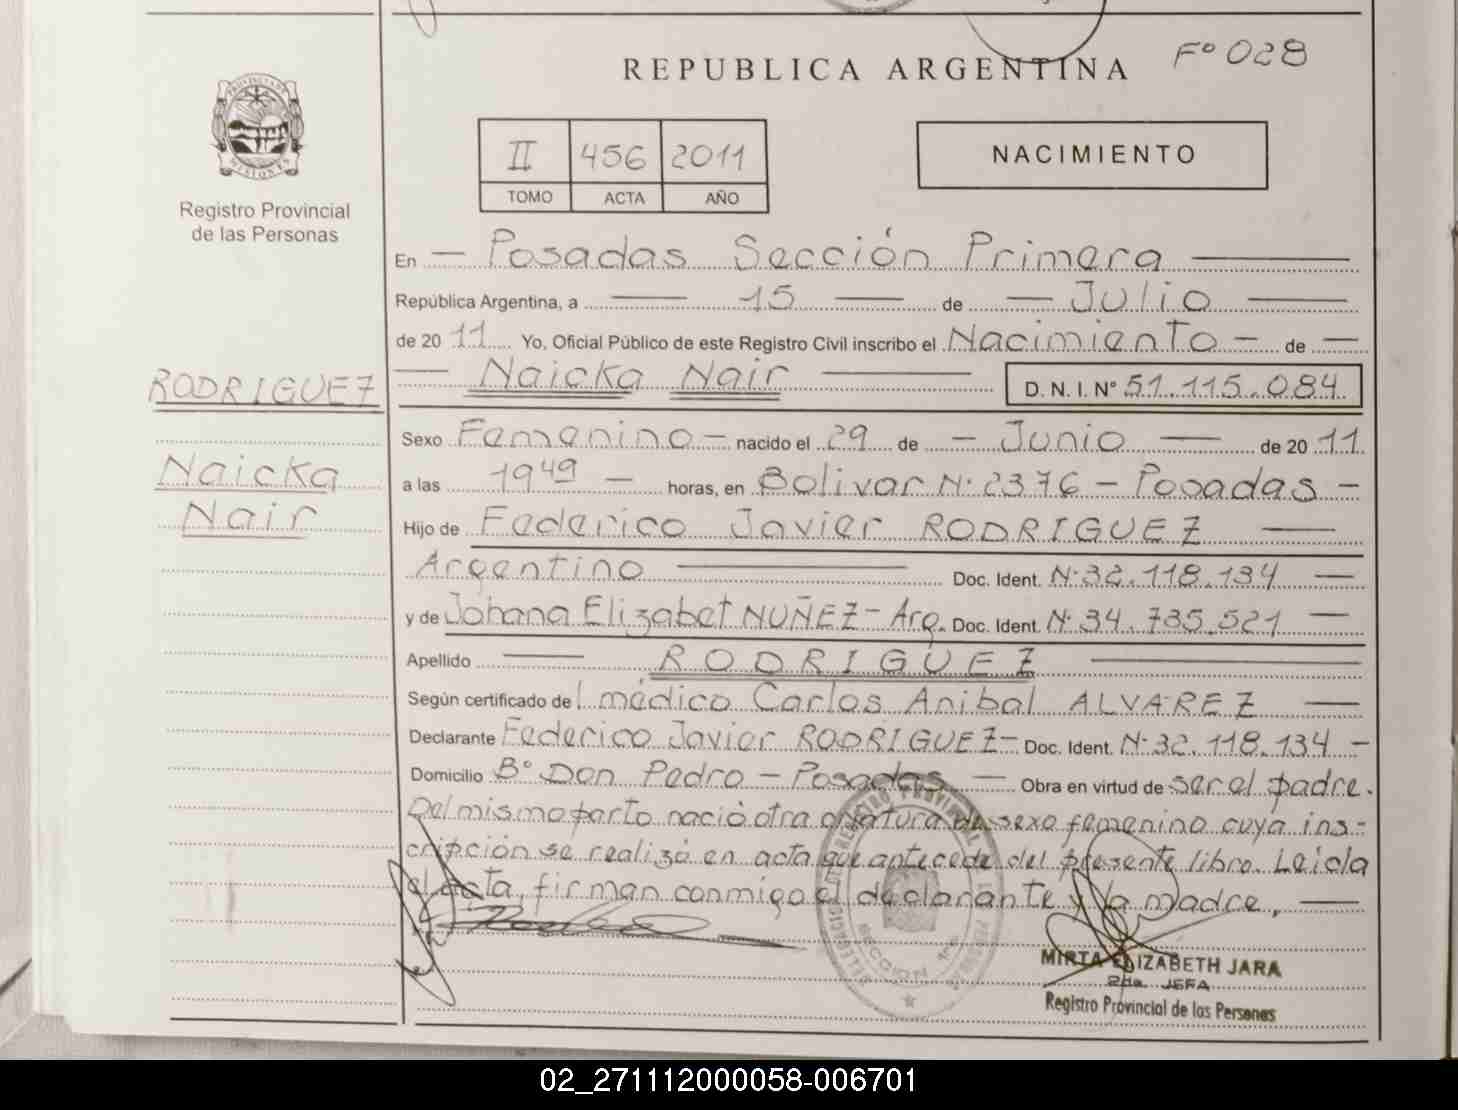 REPUBLICA ARGENTINA
Fº 028
II 456 2011
TOMO ACTA AÑO
NACIMIENTO
PROVINCIA DE MISIONES
Registro Provincial
de las Personas
RODRIGUEZ
Naicka
Nair
En — Posadas Sección Primera —
República Argentina, a — 15 — de — Julio —
de 20 11 Yo, Oficial Público de este Registro Civil inscribo el Nacimiento — de —
— Naicka Nair — D. N. I. Nº 51.115.084
Sexo Femenino — nacido el 29 de — Junio — de 20 11
a las 19 49 — horas, en Bolivar Nº 2376 — Posadas —
Hijo de Federico Javier RODRIGUEZ —
Argentino — Doc. Ident. Nº 32.118.134 —
y de Johana Elizabet NUÑEZ — Arg. Doc. Ident. Nº 34.735.521 —
Apellido — RODRIGUEZ —
Según certificado de l médico Carlos Anibal ALVAREZ —
Declarante Federico Javier RODRIGUEZ — Doc. Ident. Nº 32.118.134 —
Domicilio Bº Don Pedro — Posadas — Obra en virtud de ser el padre.
Del mismo parto nació otra criatura de sexo femenino cuya ins-
cripción se realizó en acta que antecede del presente libro. Leida
el acta, firman conmigo el declarante y la madre, —
MIRTA ELIZABETH JARA
2da. JEFA
Registro Provincial de las Personas
SECCION 1ra
02_271112000058-006701